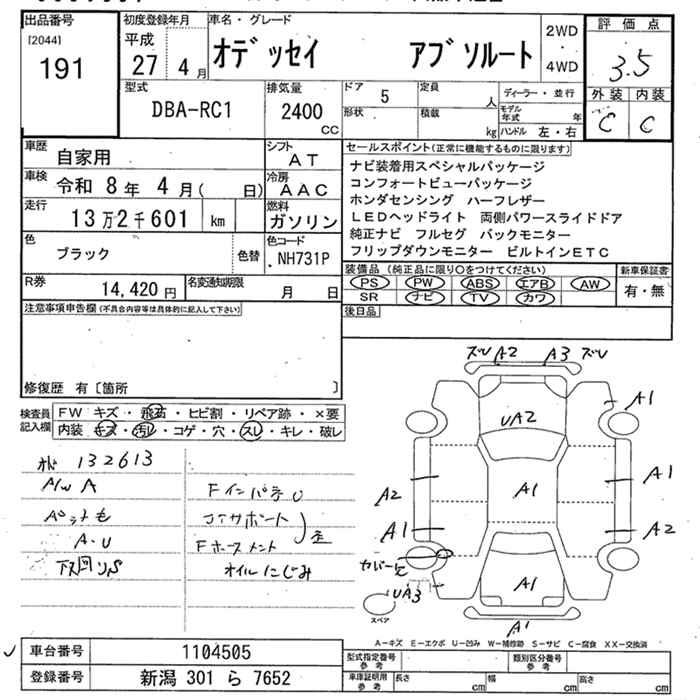 出品番号 初度登録年月 車名・グレード 2WD 評価点
[2044] 平成 ・
191 27年 4月 オデッセイ アブソルート 4WD 3.5
型式 排気量 ドア 5 定員 人 ディーラー・並行 外装 内装
DBA-RC1 2400 cc 形状 積載 kg モデル年式 年 C C
ハンドル 左・右
車歴 自家用 シフト AT セールスポイント(正常に機能するものに限ります)
車検 令和 8年 4月( 日) 冷房 AAC ナビ装着用スペシャルパッケージ
コンフォートビューパッケージ
走行 13万2千601 km 燃料 ガソリン ホンダセンシング ハーフレザー
LEDヘッドライト 両側パワースライドドア
色 ブラック 色替 色コード NH731P 純正ナビ フルセグ バックモニター
フリップダウンモニター ビルトインETC
R券 14,420円 名変通知期限 月 日 装備品(純正品に限り○をつけてください) 新車保証書
PS PW ABS エアB AW 有・無
SR ナビ TV カワ
注意事項申告欄(不具合内容等は具体的に記入して下さい) 後日品
修復歴 有〔箇所 〕
検査員記入欄 FW キズ・飛石・ヒビ割・リペア跡・×要
内装 キズ・汚れ・コゲ・穴・スレ・キレ・破レ
ズレ A2 A3 ズレ
A1
UA2
132613
A/W A Fインパネ U
A1 A1
A2
A1 A2
A・U
オイルにじみ
カバー
UA3 A1
スペア A1
A-キズ E-エクボ U-凹み W-補修跡 S-サビ C-腐食 XX-交換済
車台番号 1104505 型式指定番号 参考 類別区分番号 参考
登録番号 新潟 301 ら 7652 車庫証明用 参考 長さ cm 幅 cm 高さ cm